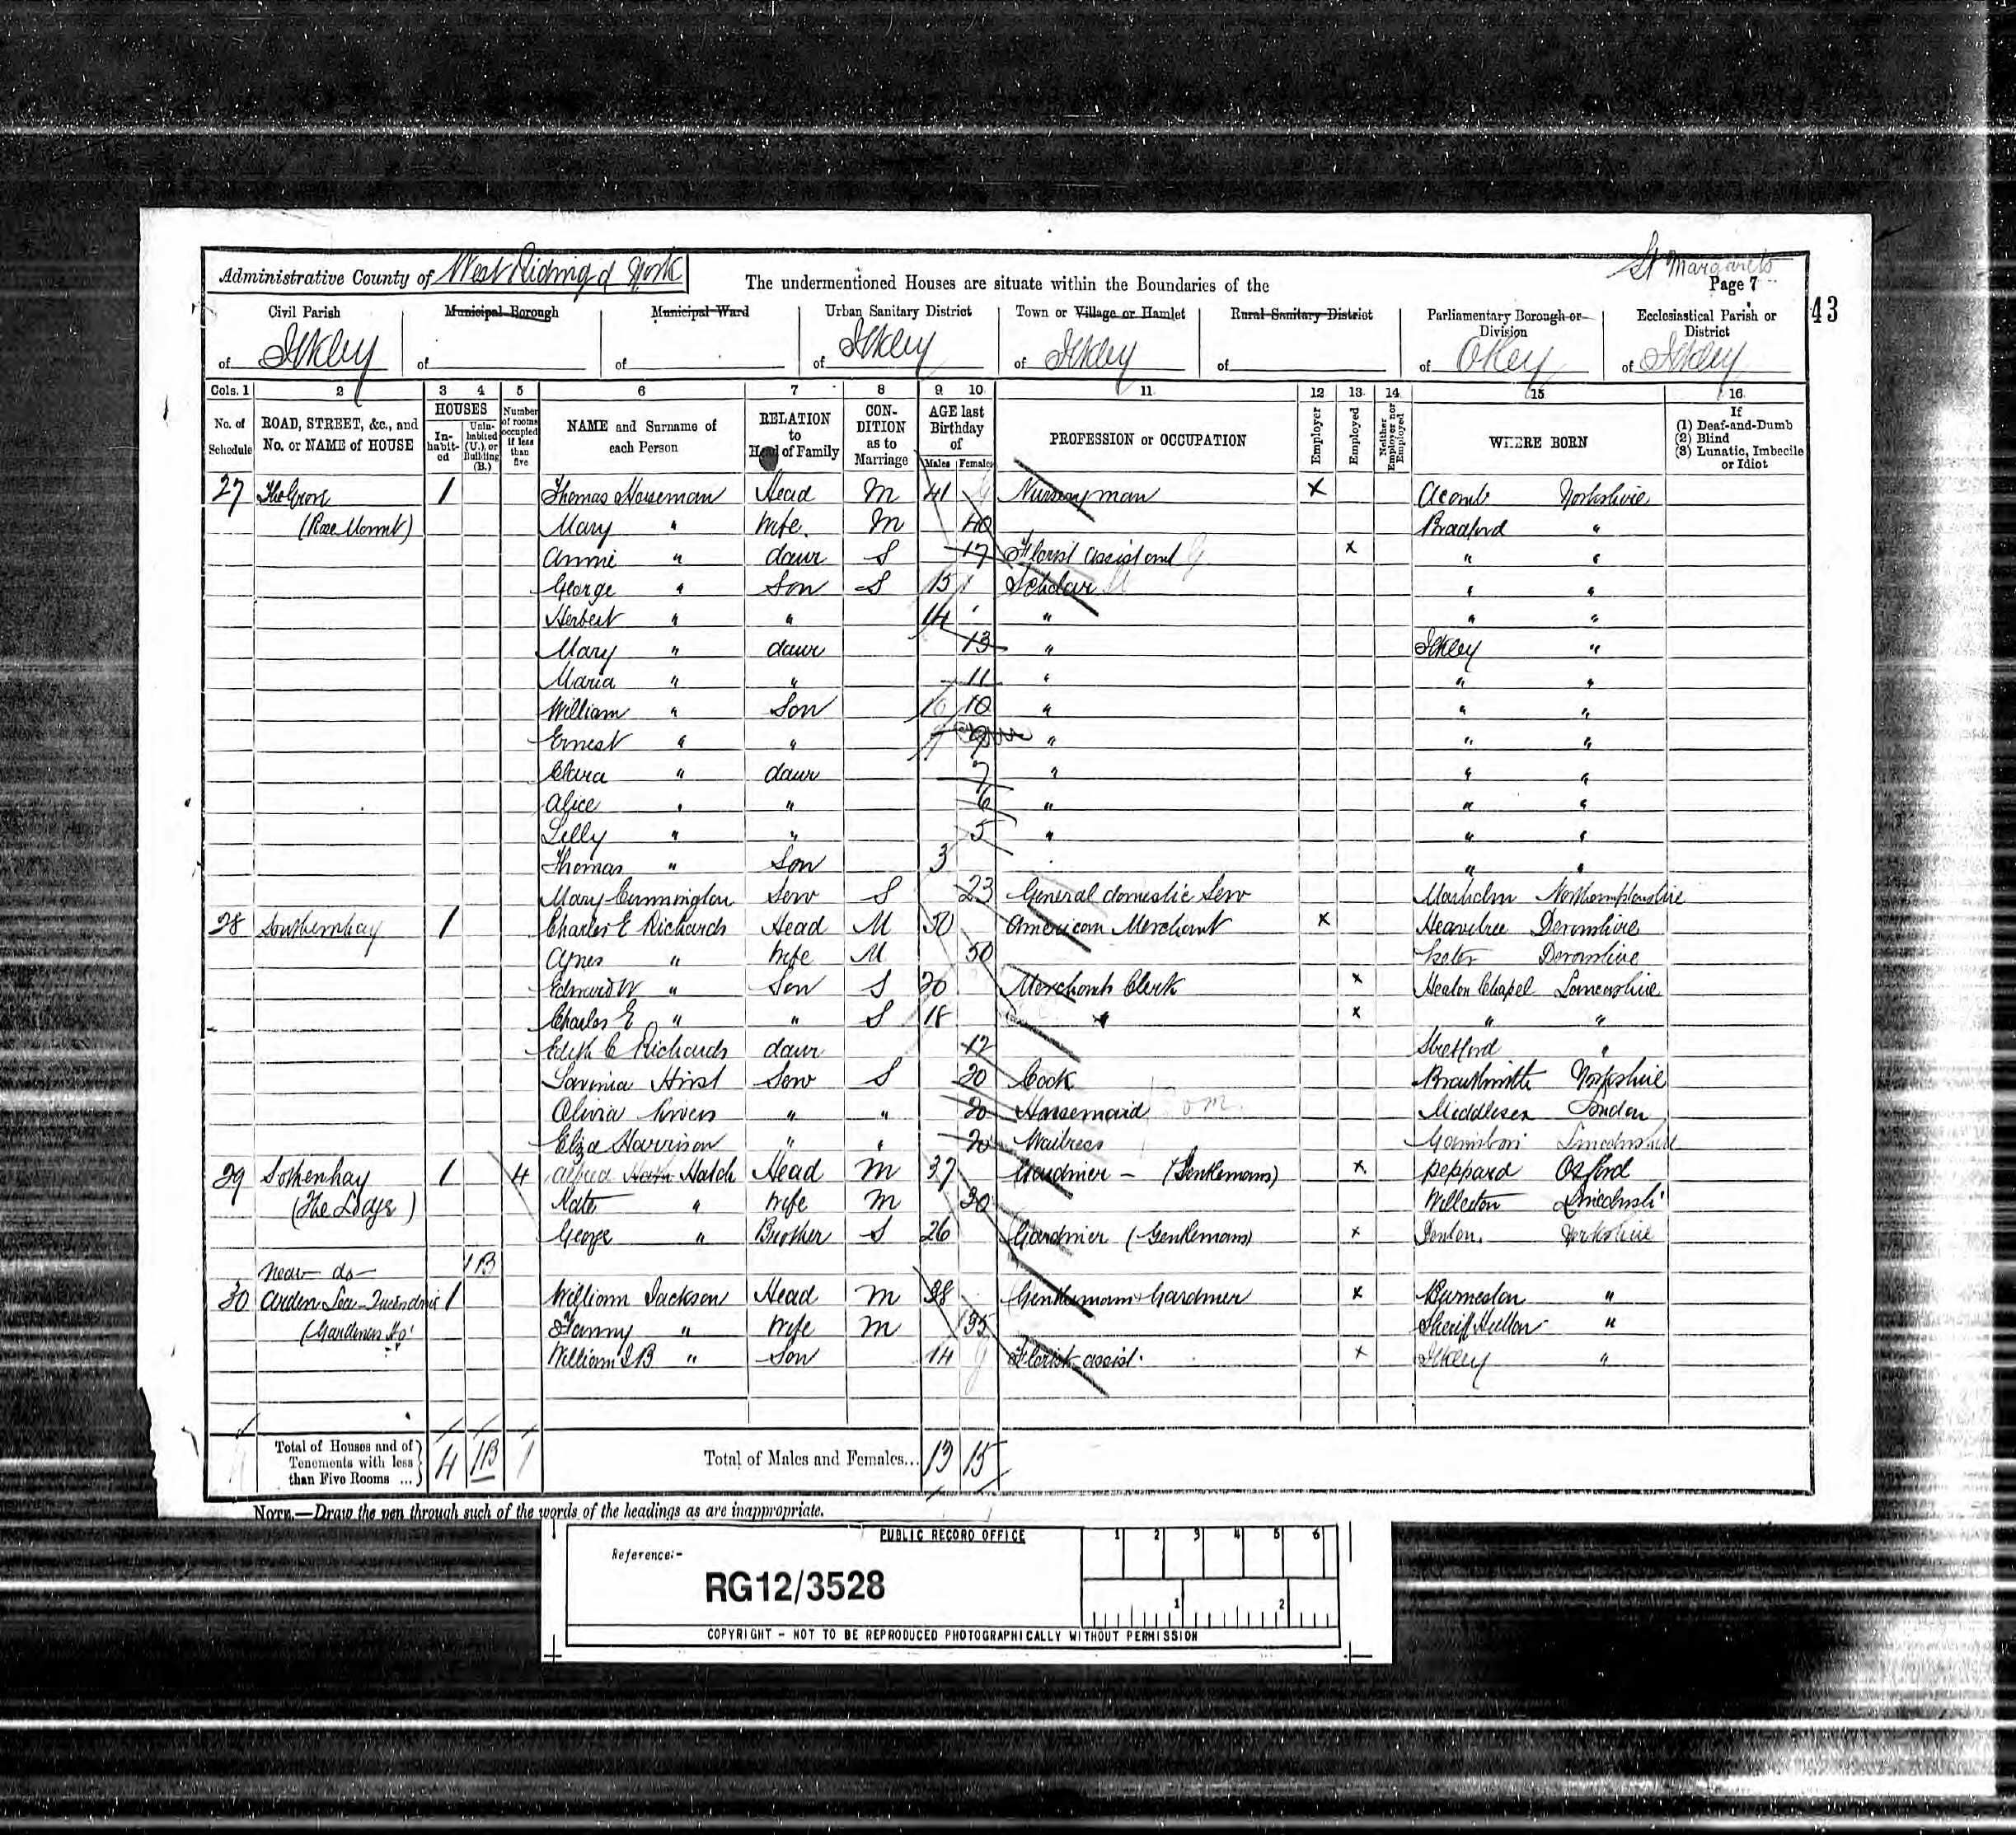 Administrative County of West Riding of York
The undermentioned Houses are situate within the Boundaries of the
St Margarets
Page 7
43
Civil Parish
of Ilkley
Municipal Borough
of
Municipal Ward
of
Urban Sanitary District
of Ilkley
Town or Village or Hamlet
of Ilkley
Rural Sanitary District
of
Parliamentary Borough or Division
of Otley
Ecclesiastical Parish or District
of Ilkley
Cols. 1 2 3 4 5 6 7 8 9 10 11 12 13 14 15 16
No. of Schedule
ROAD, STREET, &c., and No. or NAME of HOUSE
HOUSES
In-habit-ed
Unin-habited (U.), or Building (B.)
Number of rooms occupied if less than five
NAME and Surname of each Person
RELATION to Head of Family
CON-DITION as to Marriage
AGE last Birthday of
Males Females
PROFESSION or OCCUPATION
Employer
Employed
Neither Employer nor Employed
WHERE BORN
If
(1) Deaf-and-Dumb
(2) Blind
(3) Lunatic, Imbecile or Idiot
27 The Grove 1 Thomas Horseman Head M 41 Nurseryman X Acomb Yorkshire
(Rose Mount) Mary " Wife M 40 Bradford "
Annie " daur S 17 Florist assistant G X " "
George " Son S 15 Scholar " "
Herbert " " 14 " " "
Mary " daur 13 " Ilkley "
Maria " " 11 " " "
William " Son 10 10 " " "
Ernest " " 9 9 " " "
Clara " daur 7 " " "
Alice " " 6 " " "
Lilly " " 5 " " "
Thomas " Son 3 " "
Mary Cunnington Serv S 23 General domestic Serv Northamptonshire
28 Southernhay 1 Charles E Richards Head M 50 American Merchant X Heavitree Devonshire
Agnes " Wife M 50 Exeter Devonshire
Edward W " Son S 20 Merchants Clerk X Heaton Chapel Lancashire
Charles E " " S 18 " X " "
Edith C Richards daur 12 Stretford "
Lavinia Hirst Serv S 20 Cook Yorkshire
Olivia " " 20 Housemaid Dom. Middlesex London
Eliza Harrison " " 20 Waitress Lincolnshire
29 Sothenhay 1 4 Alfred Hatch Head M 37 Gardnier - (Gentlemans) X Peppard Oxford
(The Lodge) Kate " Wife M 30 Lincolnsh
George " Brother S 26 Gardnier (Gentlemans) X Denton Yorkshire
near do 1B
30 Arden Lea 1 William Jackson Head M 38 Gentlemans Gardnier X Burneston "
(Gardeners Ho) Fanny " Wife M 35 Sheriff Hutton "
William I B " Son 14 Florist assist. X Ilkley "
Total of Houses and of Tenements with less than Five Rooms ... 4 1B 1
Total of Males and Females... 13 15
NOTE.—Draw the pen through such of the words of the headings as are inappropriate.
PUBLIC RECORD OFFICE
1 2 3 4 5 6
Reference:-
RG12/3528
1 2
COPYRIGHT - NOT TO BE REPRODUCED PHOTOGRAPHICALLY WITHOUT PERMISSION